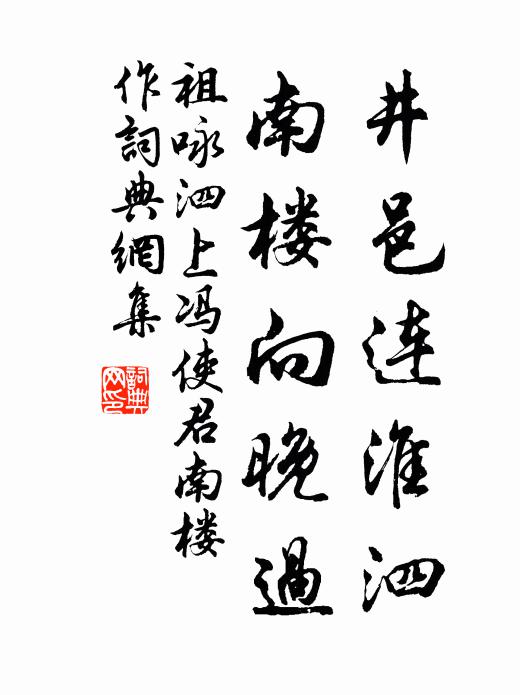 井邑连淮泗
南楼向晚過
祖咏泗上冯使君南楼
作詞典網集
詞典
网印